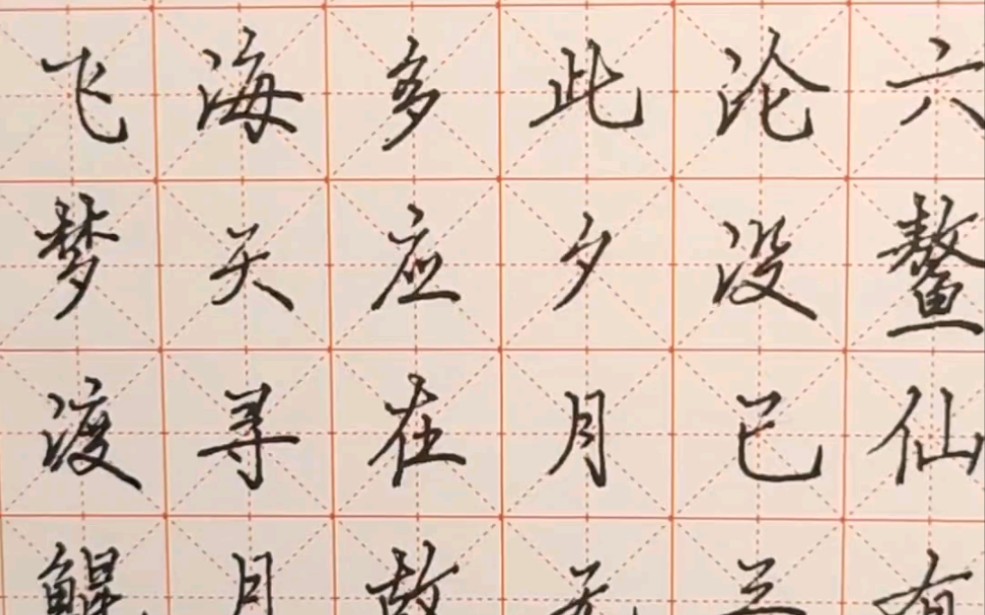 六鳌仙有
沦没已三
此夕月无
多应在故
海天寻月
飞梦渡鲲